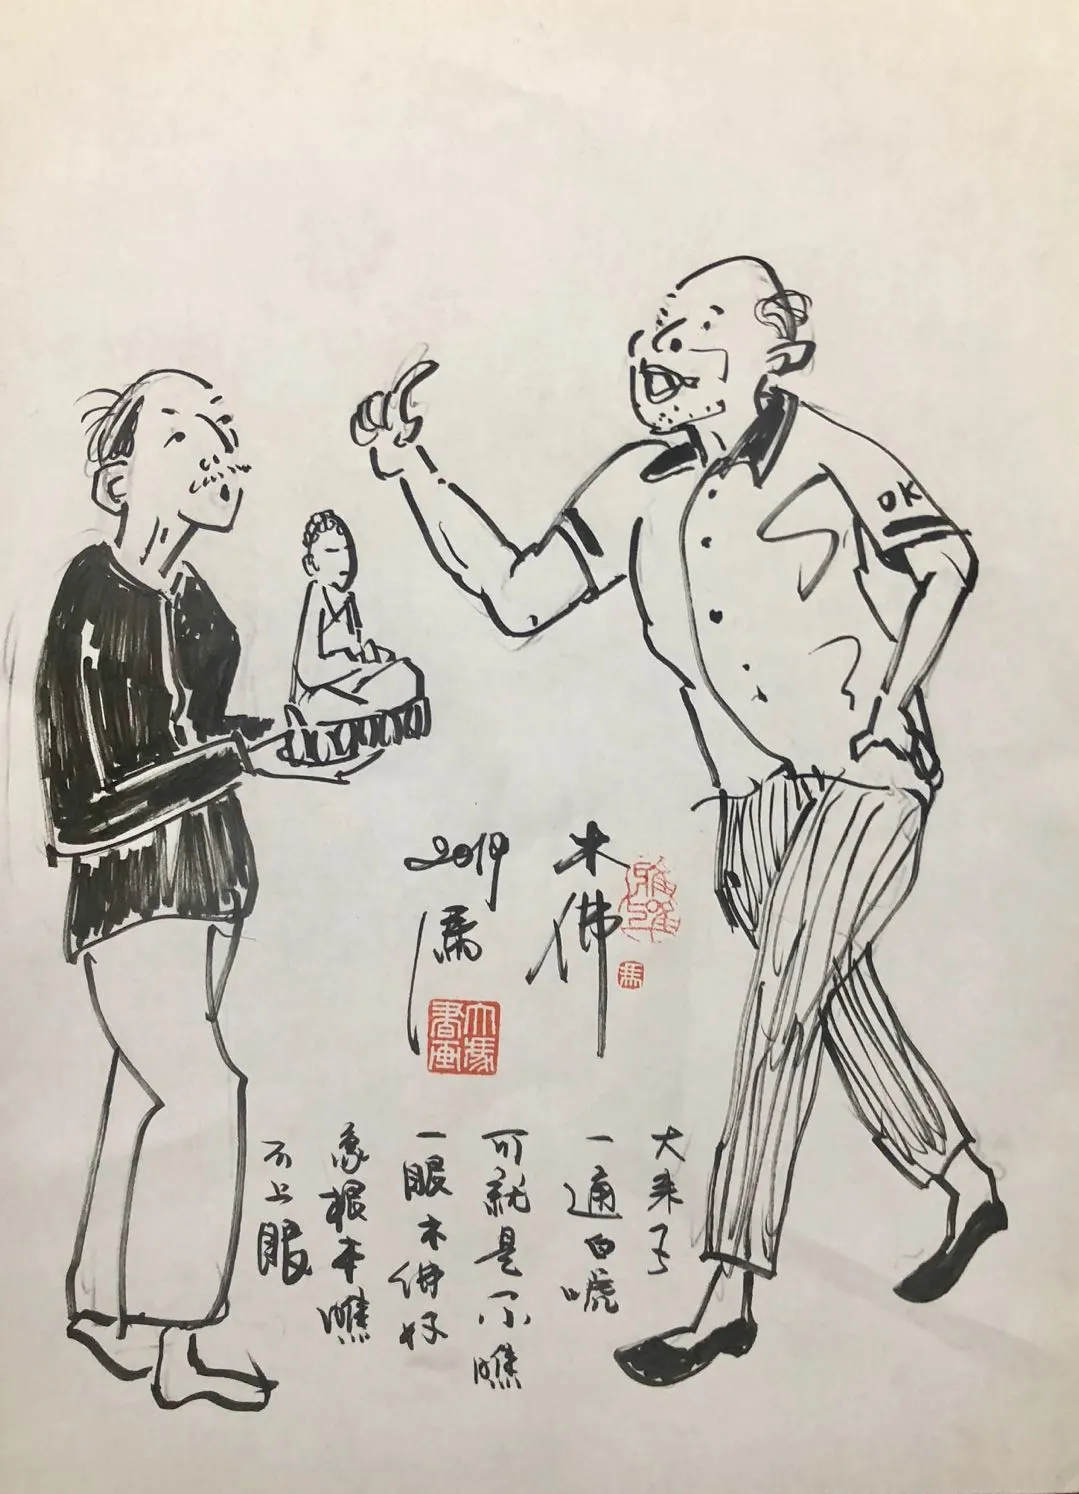 OK
木佛
2019
馮
馮
大馮書画
大来子
一通白唬
可就是不瞧
一眼木佛好
象根本瞧
不上眼